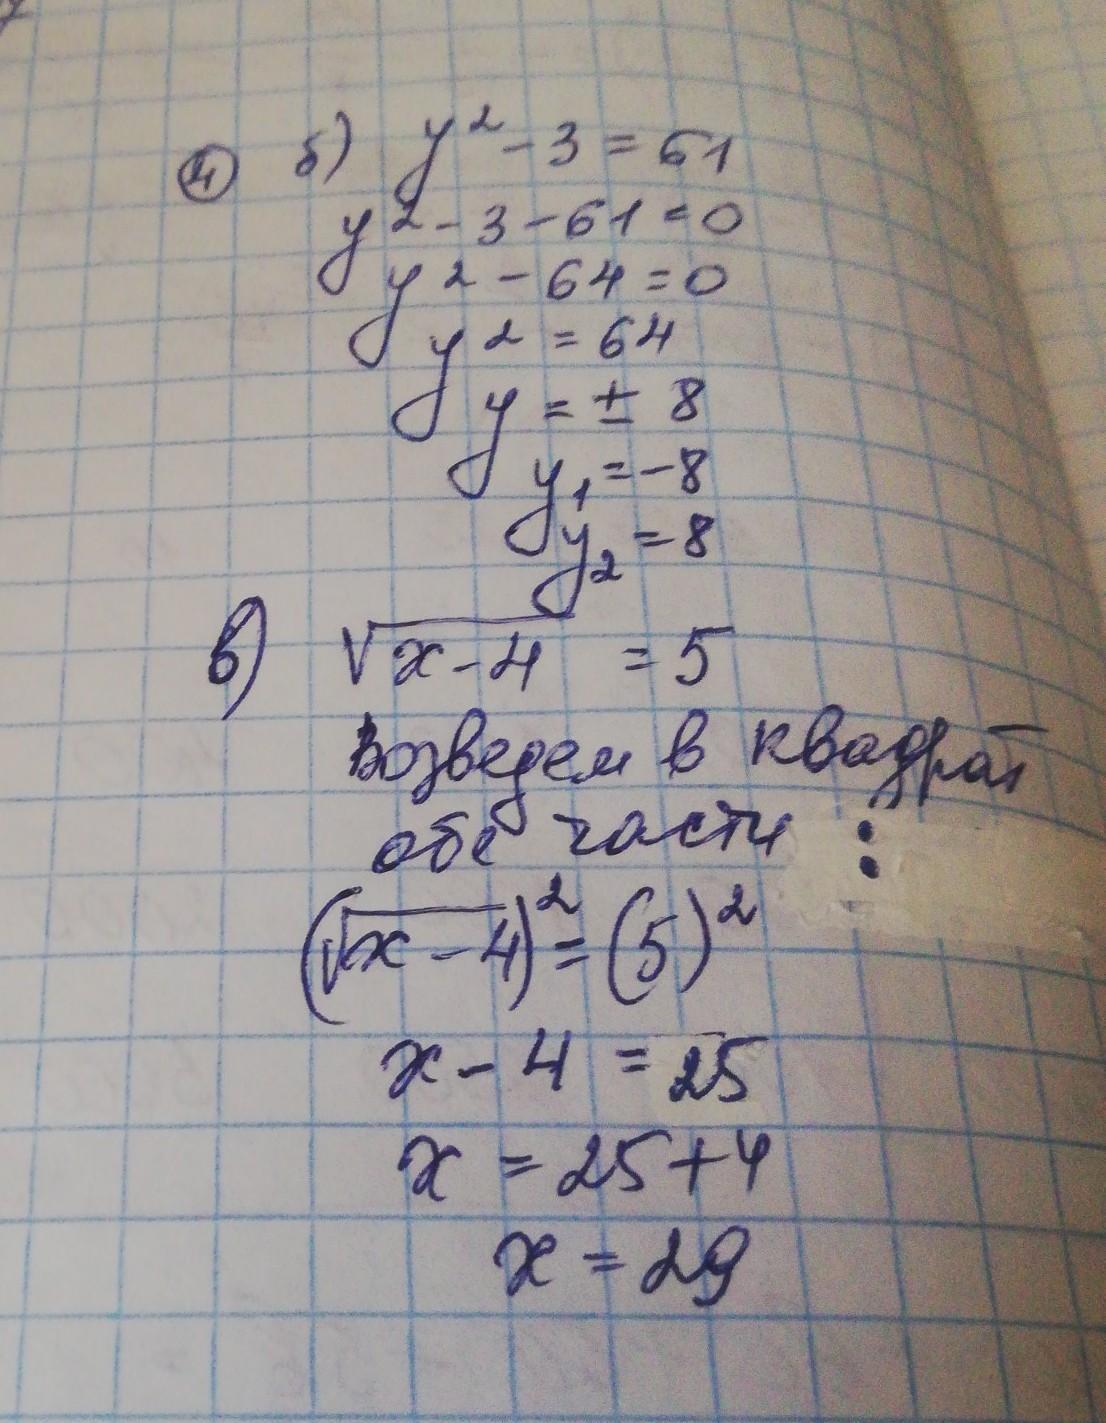 ④ б) y² - 3 = 61
y² - 3 - 61 = 0
y² - 64 = 0
y² = 64
y = ± 8
y₁ = -8
y₂ = 8
в) √(x - 4) = 5
Возведем в квадрат
обе части :
(√(x - 4))² = (5)²
x - 4 = 25
x = 25 + 4
x = 29